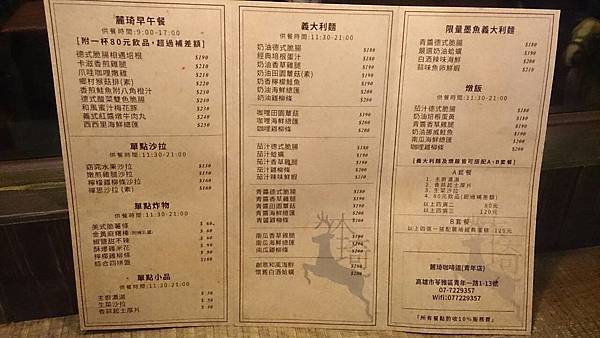 麗琦早午餐
供餐時間:9:00-17:00
[附一杯80元飲品,超過補差額]
德式脆腸相遇培根 $190
卡滋香煎雞腿 $190
爪哇咖哩嫩雞 $210
鄉村猴菇排(素) $220
香煎鮭魚附八角橙汁 $230
德式酸菜雙色脆腸 $210
和風蜜汁梅花豚 $210
義式紅醬燉牛肉丸 $240
西西里海鮮總匯 $250
單點沙拉
供餐時間:11:30-21:00
窈窕水果沙拉 $150
嫩煎雞腿沙拉 $160
檸檬雞柳條沙拉 $160
禪思沙拉(素) $160
單點炸物
供餐時間:11:30-21:00
美式脆薯條 $ 60
金黃麻糬棒
椒鹽甜不辣
酥爆雞米花
檸檬雞柳條
綜合四拼盤
單點小品
供餐時間:11:30-21:00
主廚濃湯
生菜沙拉
香蒜起士厚片
義大利麵
供餐時間:11:30-21:00
奶油德式脆腸 $180
經典培根蛋汁 $180
奶油香草雞腿 $190
奶油田園蕈菇(素) $190
奶香檸檬鮭魚 $190
奶油海鮮總匯 $200
奶油雞柳條 $200
咖哩田園蕈菇 $190
咖哩海鮮總匯 $200
咖哩雞柳條 $200
茄汁德式脆腸 $180
茄汁蛤蠣 $180
茄汁香草雞腿 $190
茄汁雞柳條 $200
茄汁辣味鮮蝦 $200
青醬德式脆腸 $180
青醬香草雞腿 $190
青醬田園蕈菇 $190
青醬海鮮總匯 $200
青醬雞柳條 $200
南瓜香草雞腿 $190
南瓜海鮮總匯 $200
南瓜雞柳條 $200
創意和風海鮮
懷舊白酒蛤蠣 $200
限量墨魚義大利麵
青醬德式脆腸 $180
嚴選奶油蛤蠣 $190
白酒辣味海鮮 $200
蒜味魚卵鮮蝦 $200
燉飯
供餐時間:11:30-21:00
茄汁德式脆腸 $180
奶油培根蛋黃 $180
青醬香草雞腿 $190
奶油挪威鮭魚 $190
南瓜海鮮總匯 $200
咖哩雞柳條 $200
[義大利麵及燉飯皆可搭配A、B套餐]
A套餐
1. 主廚濃湯
2. 香蒜起士厚片
3. 生菜沙拉
4. 80元飲品(超過補差額)
以上四選二 80元
以上四選三 120元
B套餐
以上四選一搭配麗琦經典蛋糕 120元
麗琦咖啡道(青年店)
高雄市苓雅區青年一路1-13號
07-7229357
Wifi:077229357
「所有餐點酌收10%服務費」